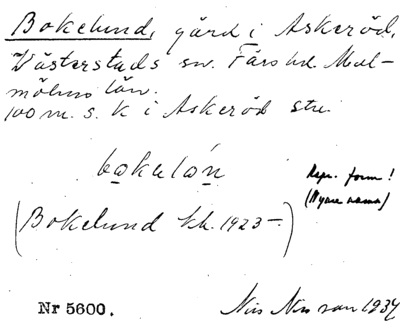 Bokelund, gård i Askeröd,
Västerstads sn. Färs hd. Mal-
möhus län.
100 m. s. k i Askeröd stn.
bokalón
Repr. form!
(Nyare namn)
(Bokelund kh. 1923-.)
Nr 5600.
Nils Nilsson 1934